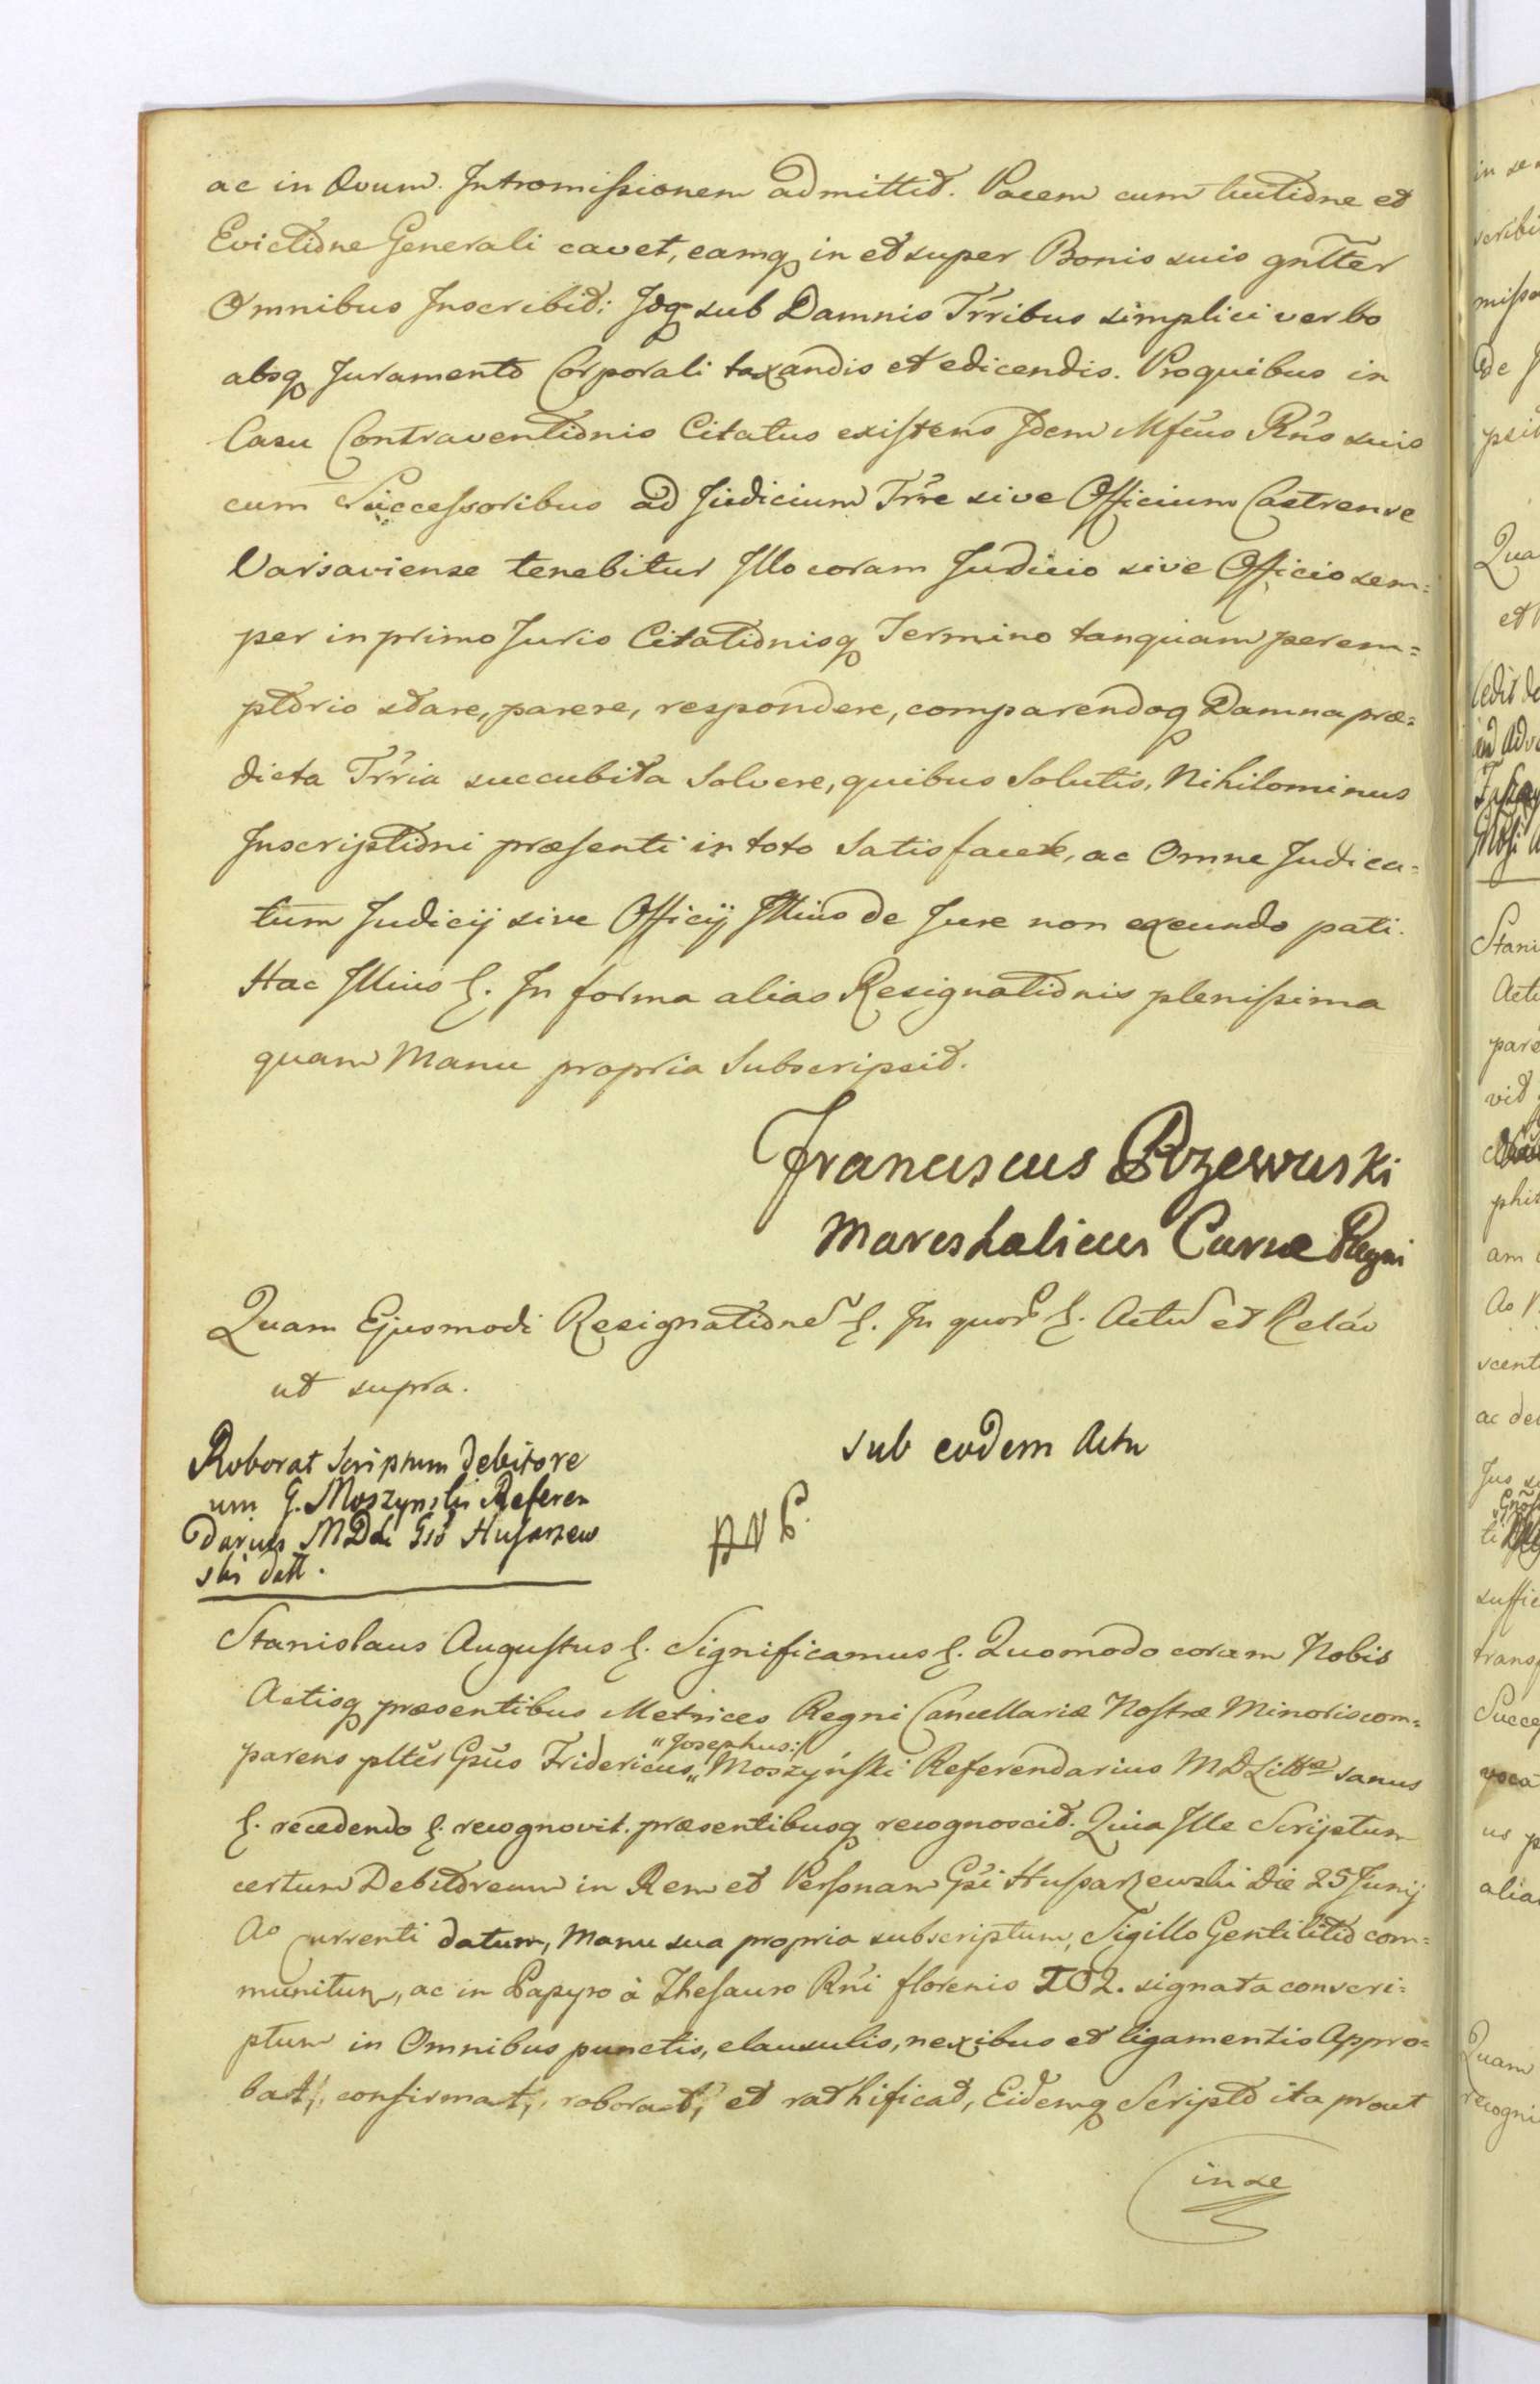 ac in Qvum. Intromissionem admittit. Pacem cum tuitione et
Evictione Generali cavet, eamq in et super Bonis suis gnlter
Omnibus Inscribit: Idq sub Damnis Trribus simplici verbo
absq Juramento Corporali taxandis et edicendis. Pro quibus in
Casu Contraventionis Citatus existens Idem Mfcus Rns suis
cum Successoribus ad Judicium Trre sive Officium Castrense
Varsaviense tenebitur Illo coram Judicio sive Officio sem=
per in primo Juris Citationisq Termino tanquam perem=
ptorio stare, parere, respondere, comparendoq Damna præ=
dicta Trria succubita Solvere, quibus Solutis, Nihilominus
Inscriptioni præsenti in toto Satisfacere, ac Omne Judica=
tum Judicij sive Officij Illius de Jure non exeundo pati.
Hac Illius &. In forma alias Resignationis plenissima
quam Manu propria Subscripsit.
Franciscus Rzewuski
Mareshalicus Curiæ Regni
Quam Ejusmodi Resignatione &. In quor &. Actu et Relao
ut supra.
Roborat Scriptum debitore
um G. Moszynski Referen
darius MDLi Gso Husarzew
ski datt.
Sub eodem Actu
Stanislaus Augustus &. Significamus &. Quomodo coram Nobis
Actisq præsentibus Metrices Regni Cancellariæ Nostræ Minoris com=
parens plter Gsus Fridericus "Josephus:/ Moszyński Referendarius MDLittæ sanus
&. recedendo &. recognovit. præsentibusq recognoscit. Quia Ille Scriptum
certum Debitoreum in Rem et Personam Gsi Husarzewski Die 25 Junij
Ao currenti datum, Manu sua propria subscriptum, Sigillo Gentilitio com=
munitum, ac in Papyro à Thesauro Rni florenis 102. signata conscri=
ptum in Omnibus punctis, clausulis, nexibus et ligamentis Appro=
bat, confirmat, roborat, et rathificat, Eidemq Scripto ita prout
in se